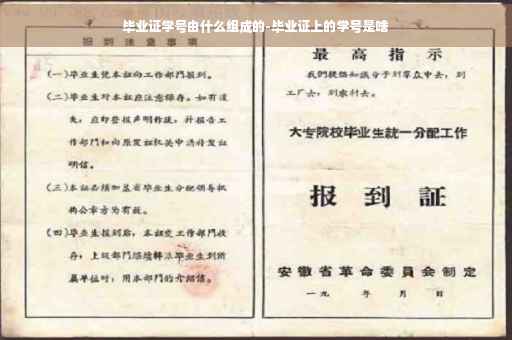 毕业证学号由什么组成的-毕业证上的学号是啥
报到注意事项
(一)毕业生凭本证向工作部门报到。
(二)毕业生对本证应注意保存。如有遗
失,应即登报声明作废,并报告工
作部门和向原发证机关申请补发证
明信。
(三)本证必须加盖省毕业生分配领导机
构公章方为有效。
(四)毕业生报到后,本证交工作部门收
存;上级部门继续转派毕业生到所
属单位时,用本部门的介绍信。
最高指示
我们提倡知识分子到羣众中去,到
工厂去,到农村去。
大专院校毕业生統一分配工作
报到証
安徽省革命委員会制定
一九 年 月 日